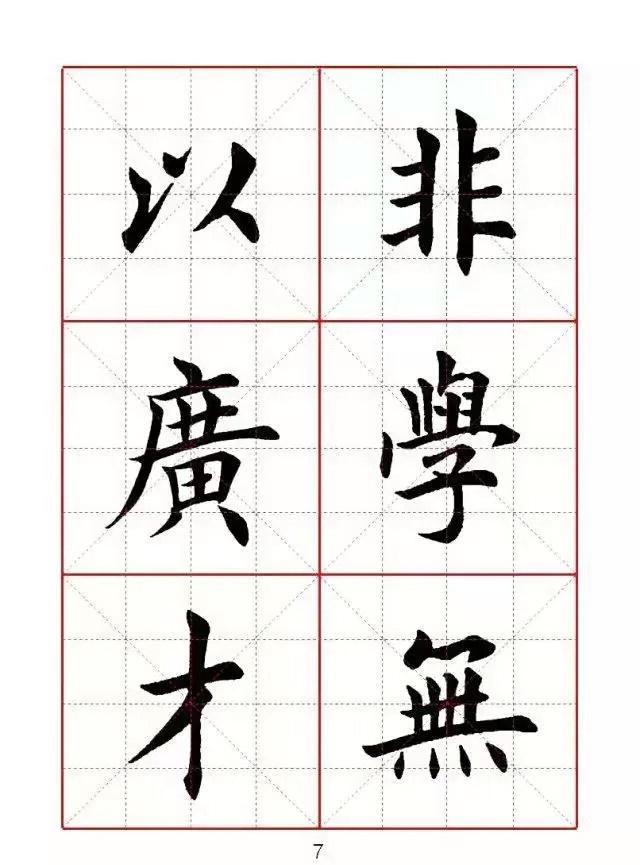 非學無
以廣才
7